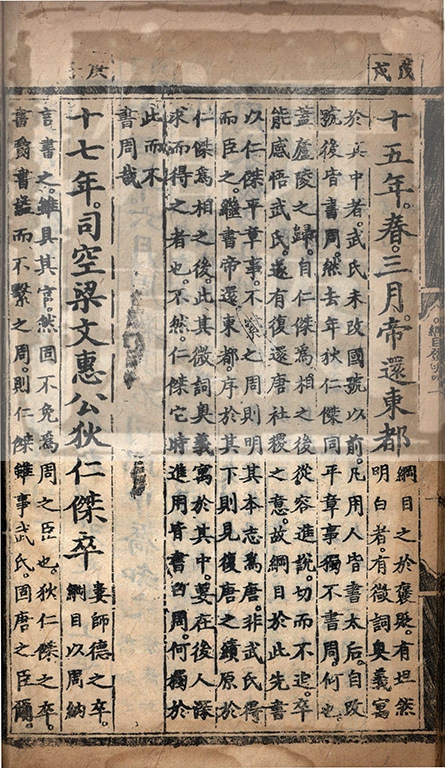 戊戌
十五年。春。三月。帝還東都
綱目之於褒貶。有坦然
明白者。有微詞奧義寓
於其中者。武氏未改國號以前。凡用人皆書太后。自改
號後皆書周。然去年狄仁傑同平章事獨不書周。何也
蓋廬陵之歸。自仁傑爲相之後。從容進說。切而不迫。卒
能感悟武氏。遂有復還唐社稷之意。故綱目於此先書
以仁傑平章事。不繫之周則明其本志爲唐。非武氏得
而臣之。繼書帝還東都。序於其下則見復唐之績原於
仁傑爲相之後。此其微詞奧義寓於其中。要在後人深
求而得之者也。不然。仁傑它時進用皆書曰周。何獨於
此而不
書周哉
庚
十七年。司空梁文惠公狄仁傑卒
婁師德之卒。
綱目以周納
言書之。雖具其官。然固不免爲周之臣也。狄仁傑之卒。
書爵書諡而不繫之周。則仁傑雖事武氏。固唐之臣爾。